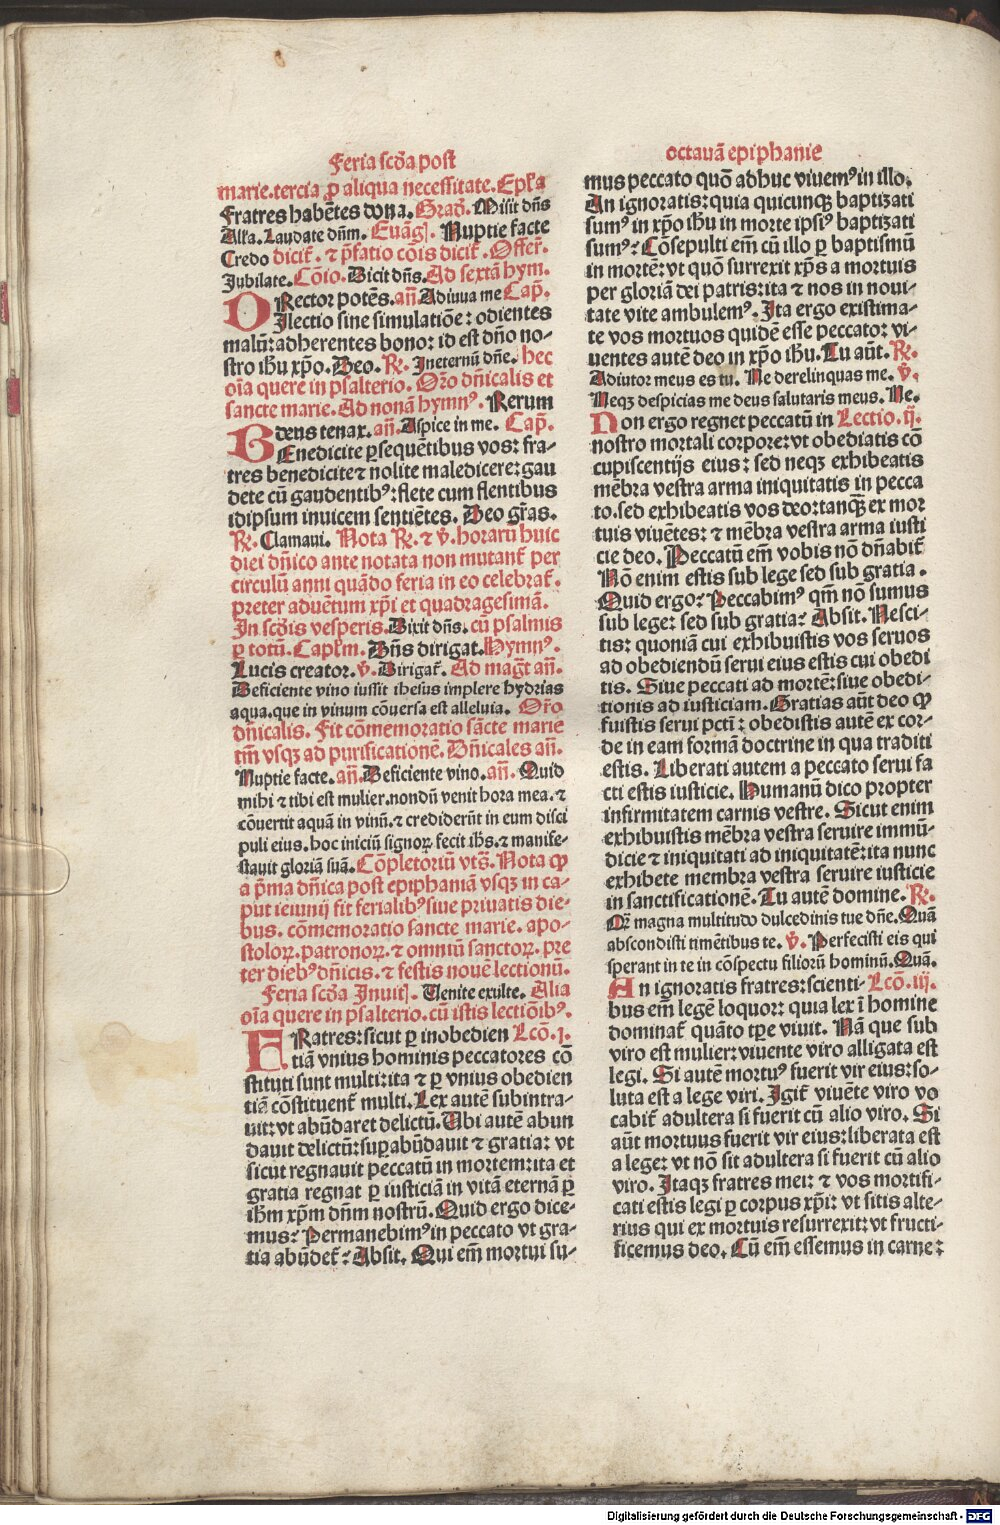 Feria scďa post
marie.tercia ꝑ aliqua necessitate.Epl'a
Fratres habētes dona. Grad̄. Misit dn̄s
All'a. Laudate dn̄m. Euāgꝭ. Nuptie facte
Credo dicit᷑. ⁊ p̄fatio cōis dicit᷑. Offer̄.
Jubilate. Cōio. Dicit dn̄s. Ad sextā hym.
O Rector potēs. an̄. Adiuua me Cap̄.
DIlectio sine simulatiōe: odientes
malū:adherentes bono: id est dn̄o no-
stro ihu xp̄o. Deo. R̄. Jneternū dn̄e. hec
oīa quere in psalterio. Or̄o dn̄icalis et
sancte marie. Ad nonā hymn⁹. Rerum
deus tenax. an̄. Aspice in me. Cap̄.
BEnedicite ꝑsequētibus vos: fra-
tres benedicite ⁊ nolite maledicere: gau
dete cū gaudentib⁹: flete cum flentibus
idipsum inuicem sentiētes. Deo gr̄as.
R̄. Clamaui. Nota R̄. ⁊ v̄. horarū huic
diei dn̄ico ante notata non mutant᷑ per
circulū anni quādo feria in eo celebrat᷑.
preter aduētum xp̄i et quadragesimā.
Jn scďis vesperis. Dixit dn̄s. cū psalmis
ꝑ totū. Capl'm. Dn̄s dirigat. Hymn⁹.
Lucis creator. v̄. Dirigat᷑. Ad maḡt an̄.
Deficiente vino iussit ihesus implere hydrias
aqua.que in vinum cōuersa est alleluia. Or̄o
dn̄icalis. Fit cōmemoratio sācte marie
tm̄ vsqꝫ ad purificationē. Dn̄icales an̄.
Nuptie facte. an̄. Deficiente vino. an̄. Quid
mihi ⁊ tibi est mulier.nondū venit hora mea. ⁊
cōuertit aquā in vinū.⁊ crediderūt in eum disci
puli eius. hoc iniciū signoꝝ fecit ih̄s.⁊ manife-
stauit gloriā suā. Cōpletoriū vts̄. Nota ꝙ
a p̄ma dn̄ica post epiphaniā vsqꝫ in ca-
put ieiunij fit ferialib⁹ siue priuatis die-
bus. cōmemoratio sancte marie. apo-
stoloꝝ. patronoꝝ. ⁊ omniū sanctoꝝ. pre
ter dieb⁹ dn̄icis. ⁊ festis nouē lectionū.
Feria scďa Jnuitꝭ. Uenite exulte. Alia
oīa quere in psalterio. cū istis lectiōib⁹.
FRatres: sicut ꝑ inobedien Lcō. j.
tiā vnius hominis peccatores cō
stituti sunt multi: ita ⁊ ꝑ vnius obedien
tiā cōstituent᷑ multi. Lex autē subintra-
uit: vt abūdaret delictū. Ubi autē abun
dauit delictū: suꝑabūdauit ⁊ gratia: vt
sicut regnauit peccatū in mortem: ita et
gratia regnat ꝑ iusticiā in vitā eternā ꝑ
ihm̄ xp̄m dn̄m nostrū. Quid ergo dice-
mus: Permanebim⁹ in peccato vt gra-
tia abūdet᷑: Absit. Qui em̄ mortui su-
octauā epiphanie
mus peccato quō adhuc viuem⁹ in illo.
An ignoratis: quia quicunqꝫ baptizati
sum⁹ in xp̄o ihu in morte ipsi⁹ baptizati
sum⁹: Cōsepulti em̄ cū illo ꝑ baptismū
in mortē: vt quō surrexit xp̄s a mortuis
per gloriā dei patris: ita ⁊ nos in noui-
tate vite ambulem⁹. Jta ergo existima-
te vos mortuos quidē esse peccato: vi-
uentes autē deo in xp̄o ihu. Tu aūt. R̄.
Adiutor meus es tu. Ne derelinquas me. v̄.
Neqꝫ despicias me deus salutaris meus. Ne.
Non ergo regnet peccatū in Lectio. ij.
nostro mortali corpore: vt obediatis cō
cupiscentijs eius: sed neqꝫ exhibeatis
mēbra vestra arma iniquitatis in pecca
to. sed exhibeatis vos deo: tanqꝫ̄ ex mor
tuis viuētes: ⁊ mēbra vestra arma iusti
cie deo. Peccatū em̄ vobis nō dn̄abit᷑
Nō enim estis sub lege sed sub gratia.
Quid ergo: Peccabim⁹ qm̄ nō sumus
sub lege: sed sub gratia: Absit. Nesci-
tis: quoniā cui exhibuistis vos seruos
ad obediendū serui eius estis cui obedi
tis. Siue peccati ad mortē: siue obedi-
tionis ad iusticiam. Gratias aūt deo ꝙ
fuistis serui pctī: obedistis autē ex cor-
de in eam formā doctrine in qua traditi
estis. Liberati autem a peccato serui fa
cti estis iusticie. Humanū dico propter
infirmitatem carnis vestre. Sicut enim
exhibuistis mēbra vestra seruire immū-
dicie ⁊ iniquitati ad iniquitatē: ita nunc
exhibete membra vestra seruire iusticie
in sanctificationē. Tu autē domine. R̄.
Qꝫ̄ magna multitudo dulcedinis tue dn̄e. Quā
abscondisti timētibus te. v̄. Perfecisti eis qui
sperant in te in cōspectu filiorū hominū. Quā.
An ignoratis fratres: scienti- Lcō. iij.
bus em̄ legē loquor: quia lex ī homine
dominat᷑ quāto tꝑe viuit. Nā que sub
viro est mulier: viuente viro alligata est
legi. Si autē mortu⁹ fuerit vir eius: so-
luta est a lege viri. Jgit᷑ viuēte viro vo
cabit᷑ adultera si fuerit cū alio viro. Si
aūt mortuus fuerit vir eius: liberata est
a lege: vt nō sit adultera si fuerit cū alio
viro. Jtaqꝫ fratres mei: ⁊ vos mortifi-
cati estis legi ꝑ corpus xp̄i: vt sitis alte-
rius qui ex mortuis resurrexit: vt fructi-
ficemus deo. Cū em̄ essemus in carne:
Digitalisierung gefördert durch die Deutsche Forschungsgemeinschaft - DFG